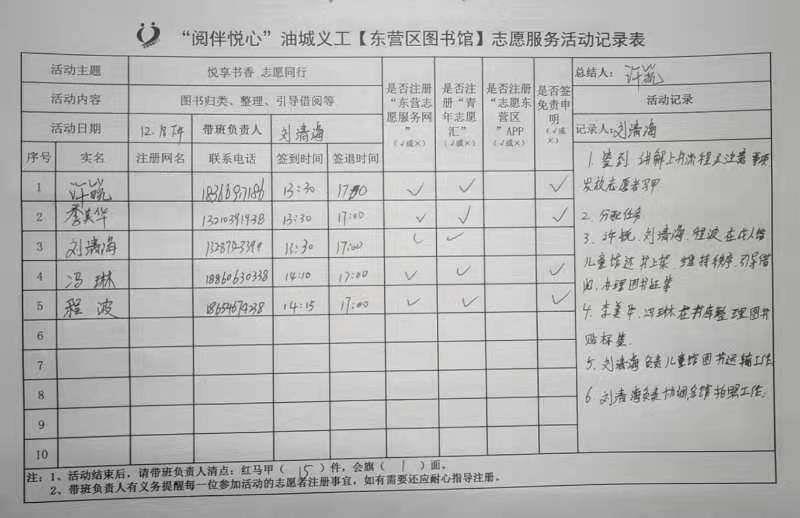 “阅伴悦心”油城义工【东营区图书馆】志愿服务活动记录表
活动主题 悦享书香 志愿同行
活动内容 图书归类、整理、引导借阅等
活动日期 12.8 下午 带班负责人 刘清海
是否注册“东营志愿服务网”(√或×)
是否注册“青年志愿汇”(√或×)
是否注册“志愿东营区”APP(√或×)
是否签免责申明(√或×)
总结人:
活动记录
记录人:刘清海
序号 实名 注册网名 联系电话 签到时间 签退时间
1 13:30 17:00 √ √ √
2 李美华 13:30 17:00 √ √ √
3 刘清海 13:30 17:00 √ √
4 冯琳 18860630338 14:10 17:00 √ √ √
5 程波 14:15 17:00 √ √ √
6
7
8
9
10
1.签到 讲解上书流程及注意事项
发放志愿者马甲
2.分配任务
3、刘清海、程波在
儿童馆还书上架、维持秩序、引导借
阅、办理图书证等
4.李美华、冯琳在书库整理图书
贴标签
5、刘清海负责儿童馆图书运输工作
6 刘清海负责协调全馆拍照工作
注:1、活动结束后,请带班负责人清点:红马甲( 15 )件,会旗( 1 )面。
2、带班负责人有义务提醒每一位参加活动的志愿者注册事宜,如有需要还应耐心指导注册。